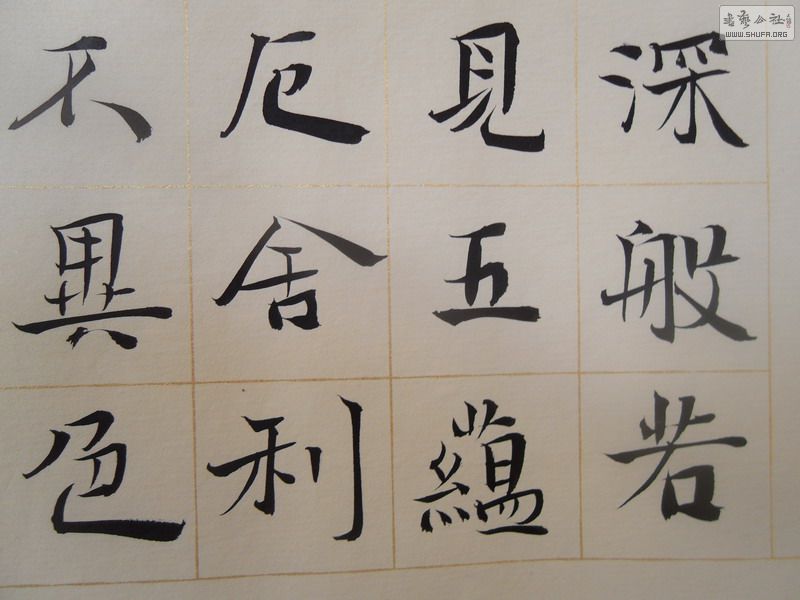 深般若
見五蘊
厄舍利
不異色
書藝公社
WWW.SHUFA.ORG